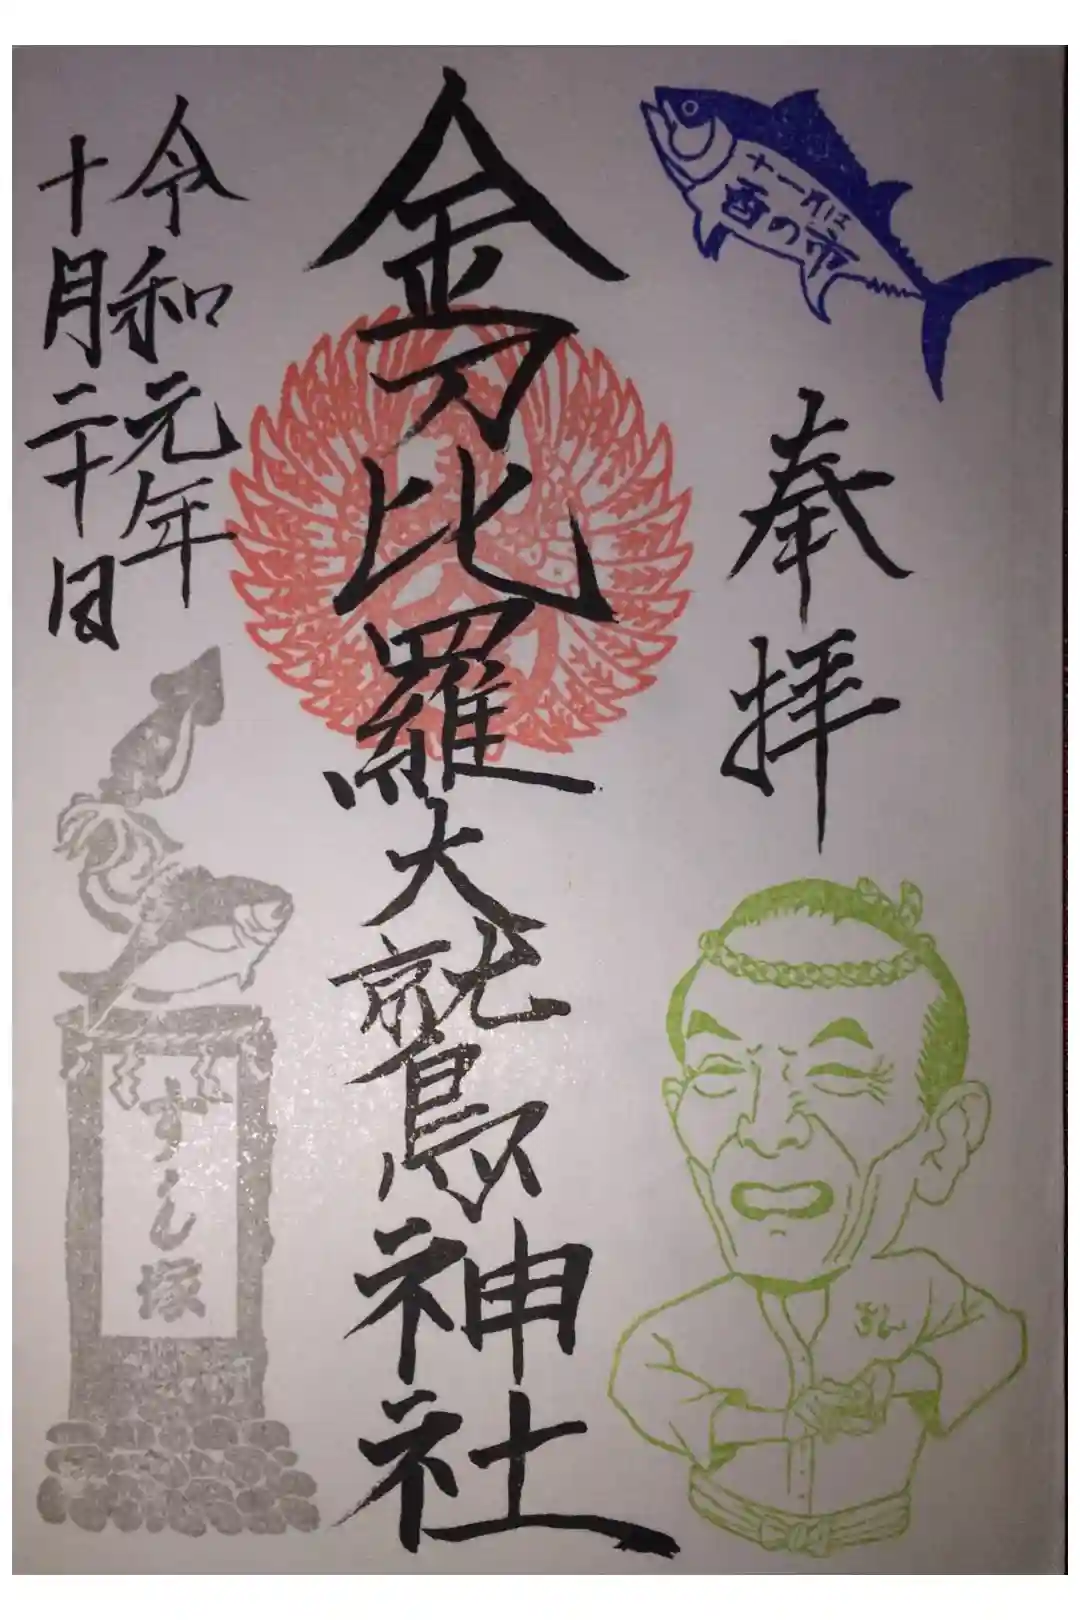 十一月は
酉の市
奉拝
金刀比羅大鷲神社
令和元年
十月二十日
すし塚